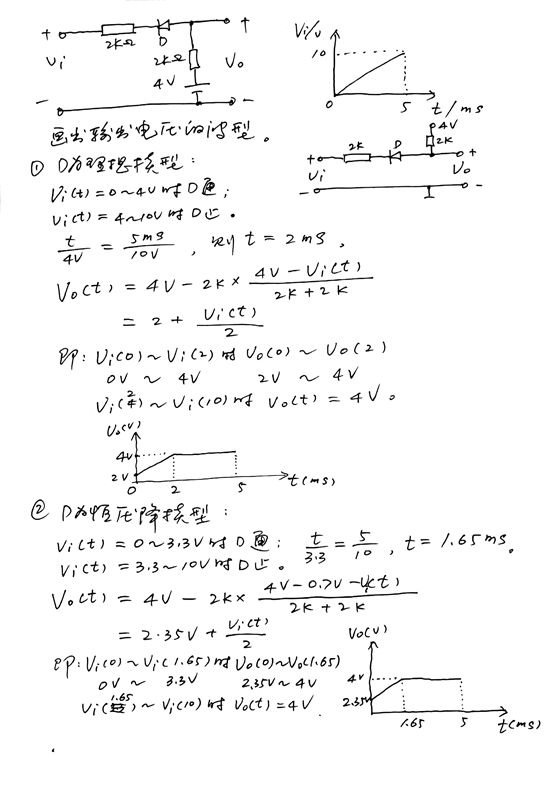 + 2KΩ D +
Vi 2KΩ Vo
4V
- -
Vi/V
10
0 5 t/ms
4V
2K
+ 2K D +
Vi Vo
- -
画出输出电压的波型。
① D为理想模型:
Vi(t)=0~4V时D通;
Vi(t)=4~10V时D止。
t/4V = 5ms/10V , 则 t = 2ms,
Vo(t) = 4V - 2K × (4V - Vi(t))/(2K + 2K)
= 2 + Vi(t)/2
即: Vi(0) ~ Vi(2) 时 Vo(0) ~ Vo(2)
0V ~ 4V 2V ~ 4V
Vi(2) ~ Vi(10) 时 Vo(t) = 4V。
Vo(V)
4V
2V
0 2 5 t(ms)
② D为恒压降模型:
Vi(t) = 0~3.3V时D通; t/3.3 = 5/10 , t = 1.65ms。
Vi(t) = 3.3~10V时D止。
Vo(t) = 4V - 2K× (4V - 0.7V - Vi(t))/(2K + 2K)
= 2.35V + Vi(t)/2
即: Vi(0) ~ Vi(1.65) 时 Vo(0)~Vo(1.65)
0V ~ 3.3V 2.35V ~ 4V
Vi(1.65) ~ Vi(10) 时 Vo(t) = 4V
Vo(V)
4V
2.35V
1.65 5 t(ms)